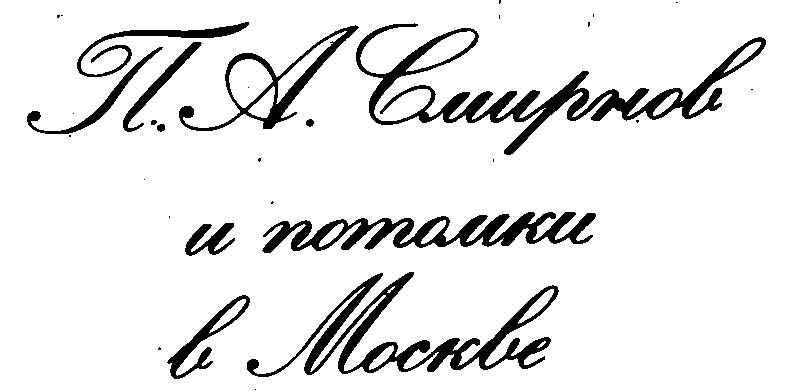 П. А. Смирнов
и потомки
в Москве